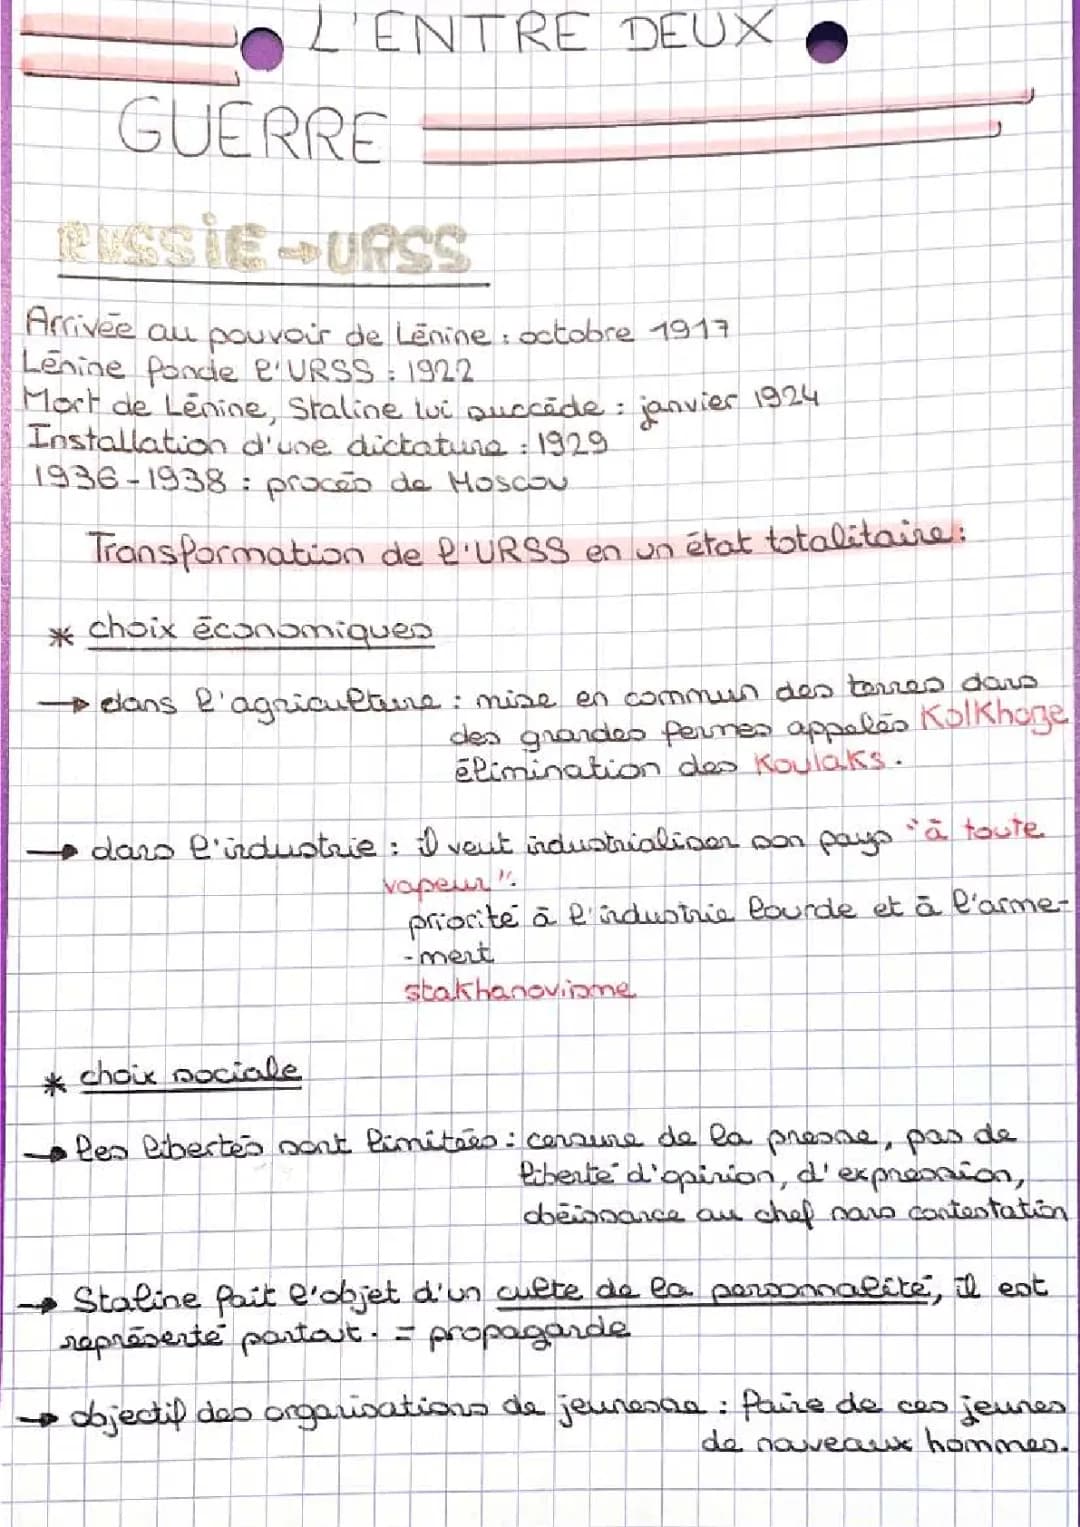 L'ENTRE DEUX
GUERRE
RUSSIE → URSS
Arrivée au pouvoir de Lénine : octobre 1917
Lénine fonde l'URSS : 1922
Mort de Lénine, Staline lui succède : janvier 1924
Installation d'une dictature : 1929
1936-1938 : procès de Moscou
Transformation de l'URSS en un état totalitaire :
* choix économiques
→ dans l'agriculture : mise en commun des terres dans
des grandes fermes appelés Kolkhoze
élimination des Koulaks.
→ dans l'industrie : il veut industrialiser son pays "à toute
vapeur".
priorité à l'industrie lourde et à l'arme-
-ment
stakhanovisme
* choix sociale
→ les libertés sont limitées : censure de la presse, pas de
liberté d'opinion, d'expression,
obéissance au chef sans contestation
→ Staline fait l'objet d'un culte de la personnalité, il est
représenté partout. = propagande
→ objectif des organisations de jeunesse : faire de ces jeunes
de nouveaux hommes.